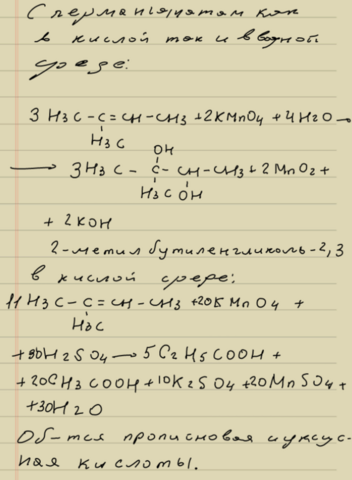 С перманганатом как
в кислой так и в водной
среде:
3 H3C – C = CH – CH3 + 2KMnO4 + 4H2O →
H3C
OH
→ 3 H3C – C – CH – CH3 + 2MnO2 +
H3C OH
+ 2KOH
2-метилбутиленгликоль-2,3
в кислой среде:
11 H3C – C = CH – CH3 + 20KMnO4 +
H3C
+ 30H2SO4 → 5C2H5COOH +
+ 20CH3COOH + 10K2SO4 + 20MnSO4 +
+ 30H2O
Об-тся пропионовая и уксус-
ная кислоты.